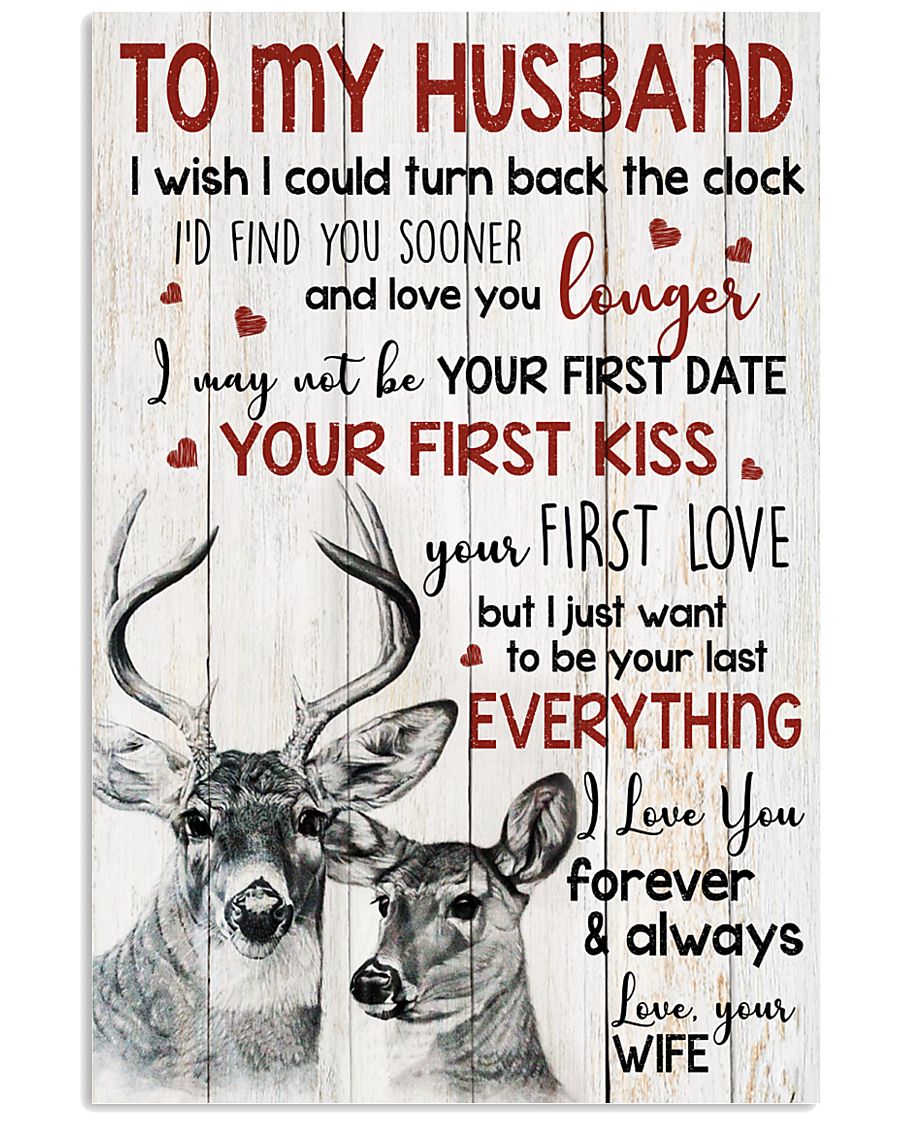 TO MY HUSBAND
I wish I could turn back the clock
I'D FIND YOU SOONER
and love you longer
I may not be YOUR FIRST DATE
YOUR FIRST KISS
your FIRST LOVE
but I just want
to be your last
EVERYTHING
I Love You
forever
& always
Love, your
WIFE